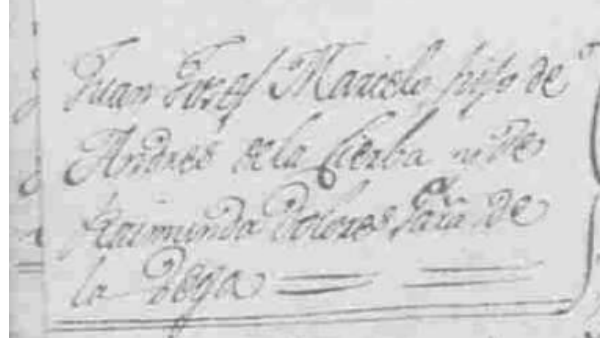 Juan Josef Mariclo hijo de
Andres dela Cierba y de
Raimunda Dolores Garª de
la Vega